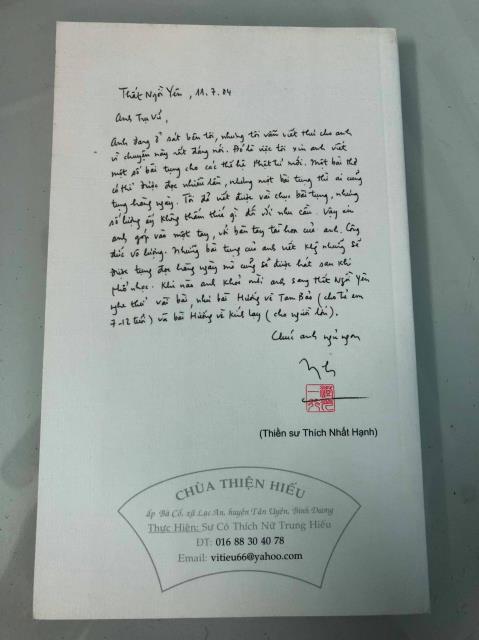 Thất Ngồi Yên, 11.7.04
Anh Trụ Vũ,
Anh đang ở sát bên tôi, nhưng tôi vẫn viết thư cho anh
vì chuyện này rất đáng nói. Đó là việc tôi xin anh viết
một số bài tụng cho các thế hệ Phật tử mới. Một bài thơ
có thể được đọc nhiều lần, nhưng một bài tụng thì ai cũng
tụng hàng ngày. Tôi đã viết được vài chục bài tụng, nhưng
số lượng ấy không thấm thía gì đối với nhu cầu. Vậy xin
anh góp vào một tay, với bàn tay tài hoa của anh. Công
đức vô lượng. Những bài tụng của anh viết không những sẽ
được tụng đọc hàng ngày mà cũng sẽ được hát sau khi
phổ nhạc. Khi nào anh khoẻ mời anh sang Thất Ngồi Yên
nghe thử vài bài, như bài Hướng về Tam Bảo (cho trẻ em
7-12 tuổi) và bài Hướng về kính lạy (cho người lớn).
Chúc anh ngủ ngon
(Thiền sư Thích Nhất Hạnh)
CHÙA THIỆN HIẾU
ấp Bà Cố, xã Lạc An, huyện Tân Uyên, Bình Dương
Thực Hiện: Sư Cô Thích Nữ Trung Hiếu
ĐT: 016 88 30 40 78
Email: vitieu66@yahoo.com